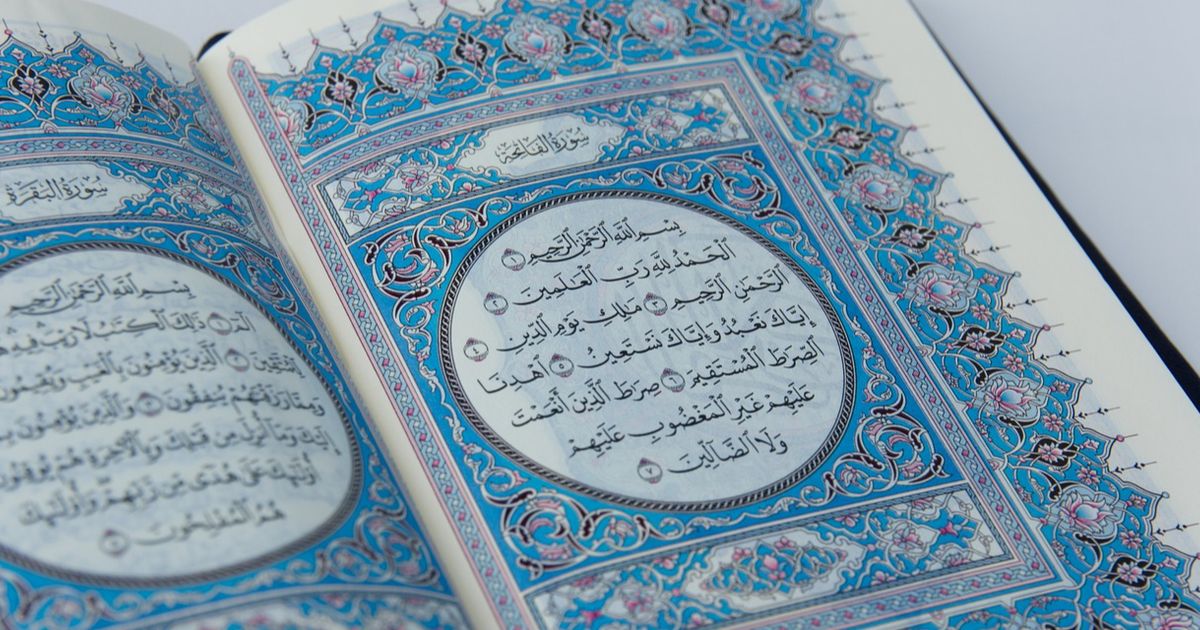 سُورَةُ الفَاتِحَةِ
بِسْمِ ٱللَّهِ ٱلرَّحْمَٰنِ ٱلرَّحِيمِ ١
ٱلْحَمْدُ لِلَّهِ رَبِّ ٱلْعَٰلَمِينَ ٢
ٱلرَّحْمَٰنِ ٱلرَّحِيمِ ٣ مَٰلِكِ يَوْمِ ٱلدِّينِ ٤
إِيَّاكَ نَعْبُدُ وَإِيَّاكَ نَسْتَعِينُ ٥ ٱهْدِنَا
ٱلصِّرَٰطَ ٱلْمُسْتَقِيمَ ٦ صِرَٰطَ ٱلَّذِينَ أَنْعَمْتَ
عَلَيْهِمْ غَيْرِ ٱلْمَغْضُوبِ عَلَيْهِمْ
وَلَا ٱلضَّآلِّينَ ٧
سُورَةُ البَقَرَةِ
بِسْمِ ٱللَّهِ ٱلرَّحْمَٰنِ ٱلرَّحِيمِ
الٓمٓ ١ ذَٰلِكَ ٱلْكِتَٰبُ لَا رَيْبَ فِيهِ
لِّلْمُتَّقِينَ ٢ ٱلَّذِينَ يُؤْمِنُونَ بِٱلْغَيْبِ وَيُقِيمُونَ
وَمِمَّا رَزَقْنَٰهُمْ يُنفِقُونَ ٣ وَٱلَّذِينَ يُؤْمِنُونَ
إِلَيْكَ وَمَآ أُنزِلَ مِن قَبْلِكَ وَبِٱلْءَاخِرَةِ هُمْ يُوقِنُونَ
أُو۟لَٰٓئِكَ عَلَىٰ هُدًى مِّن رَّبِّهِمْ وَأُو۟لَٰٓئِكَ
هُمُ ٱلْمُفْلِحُونَ ٥